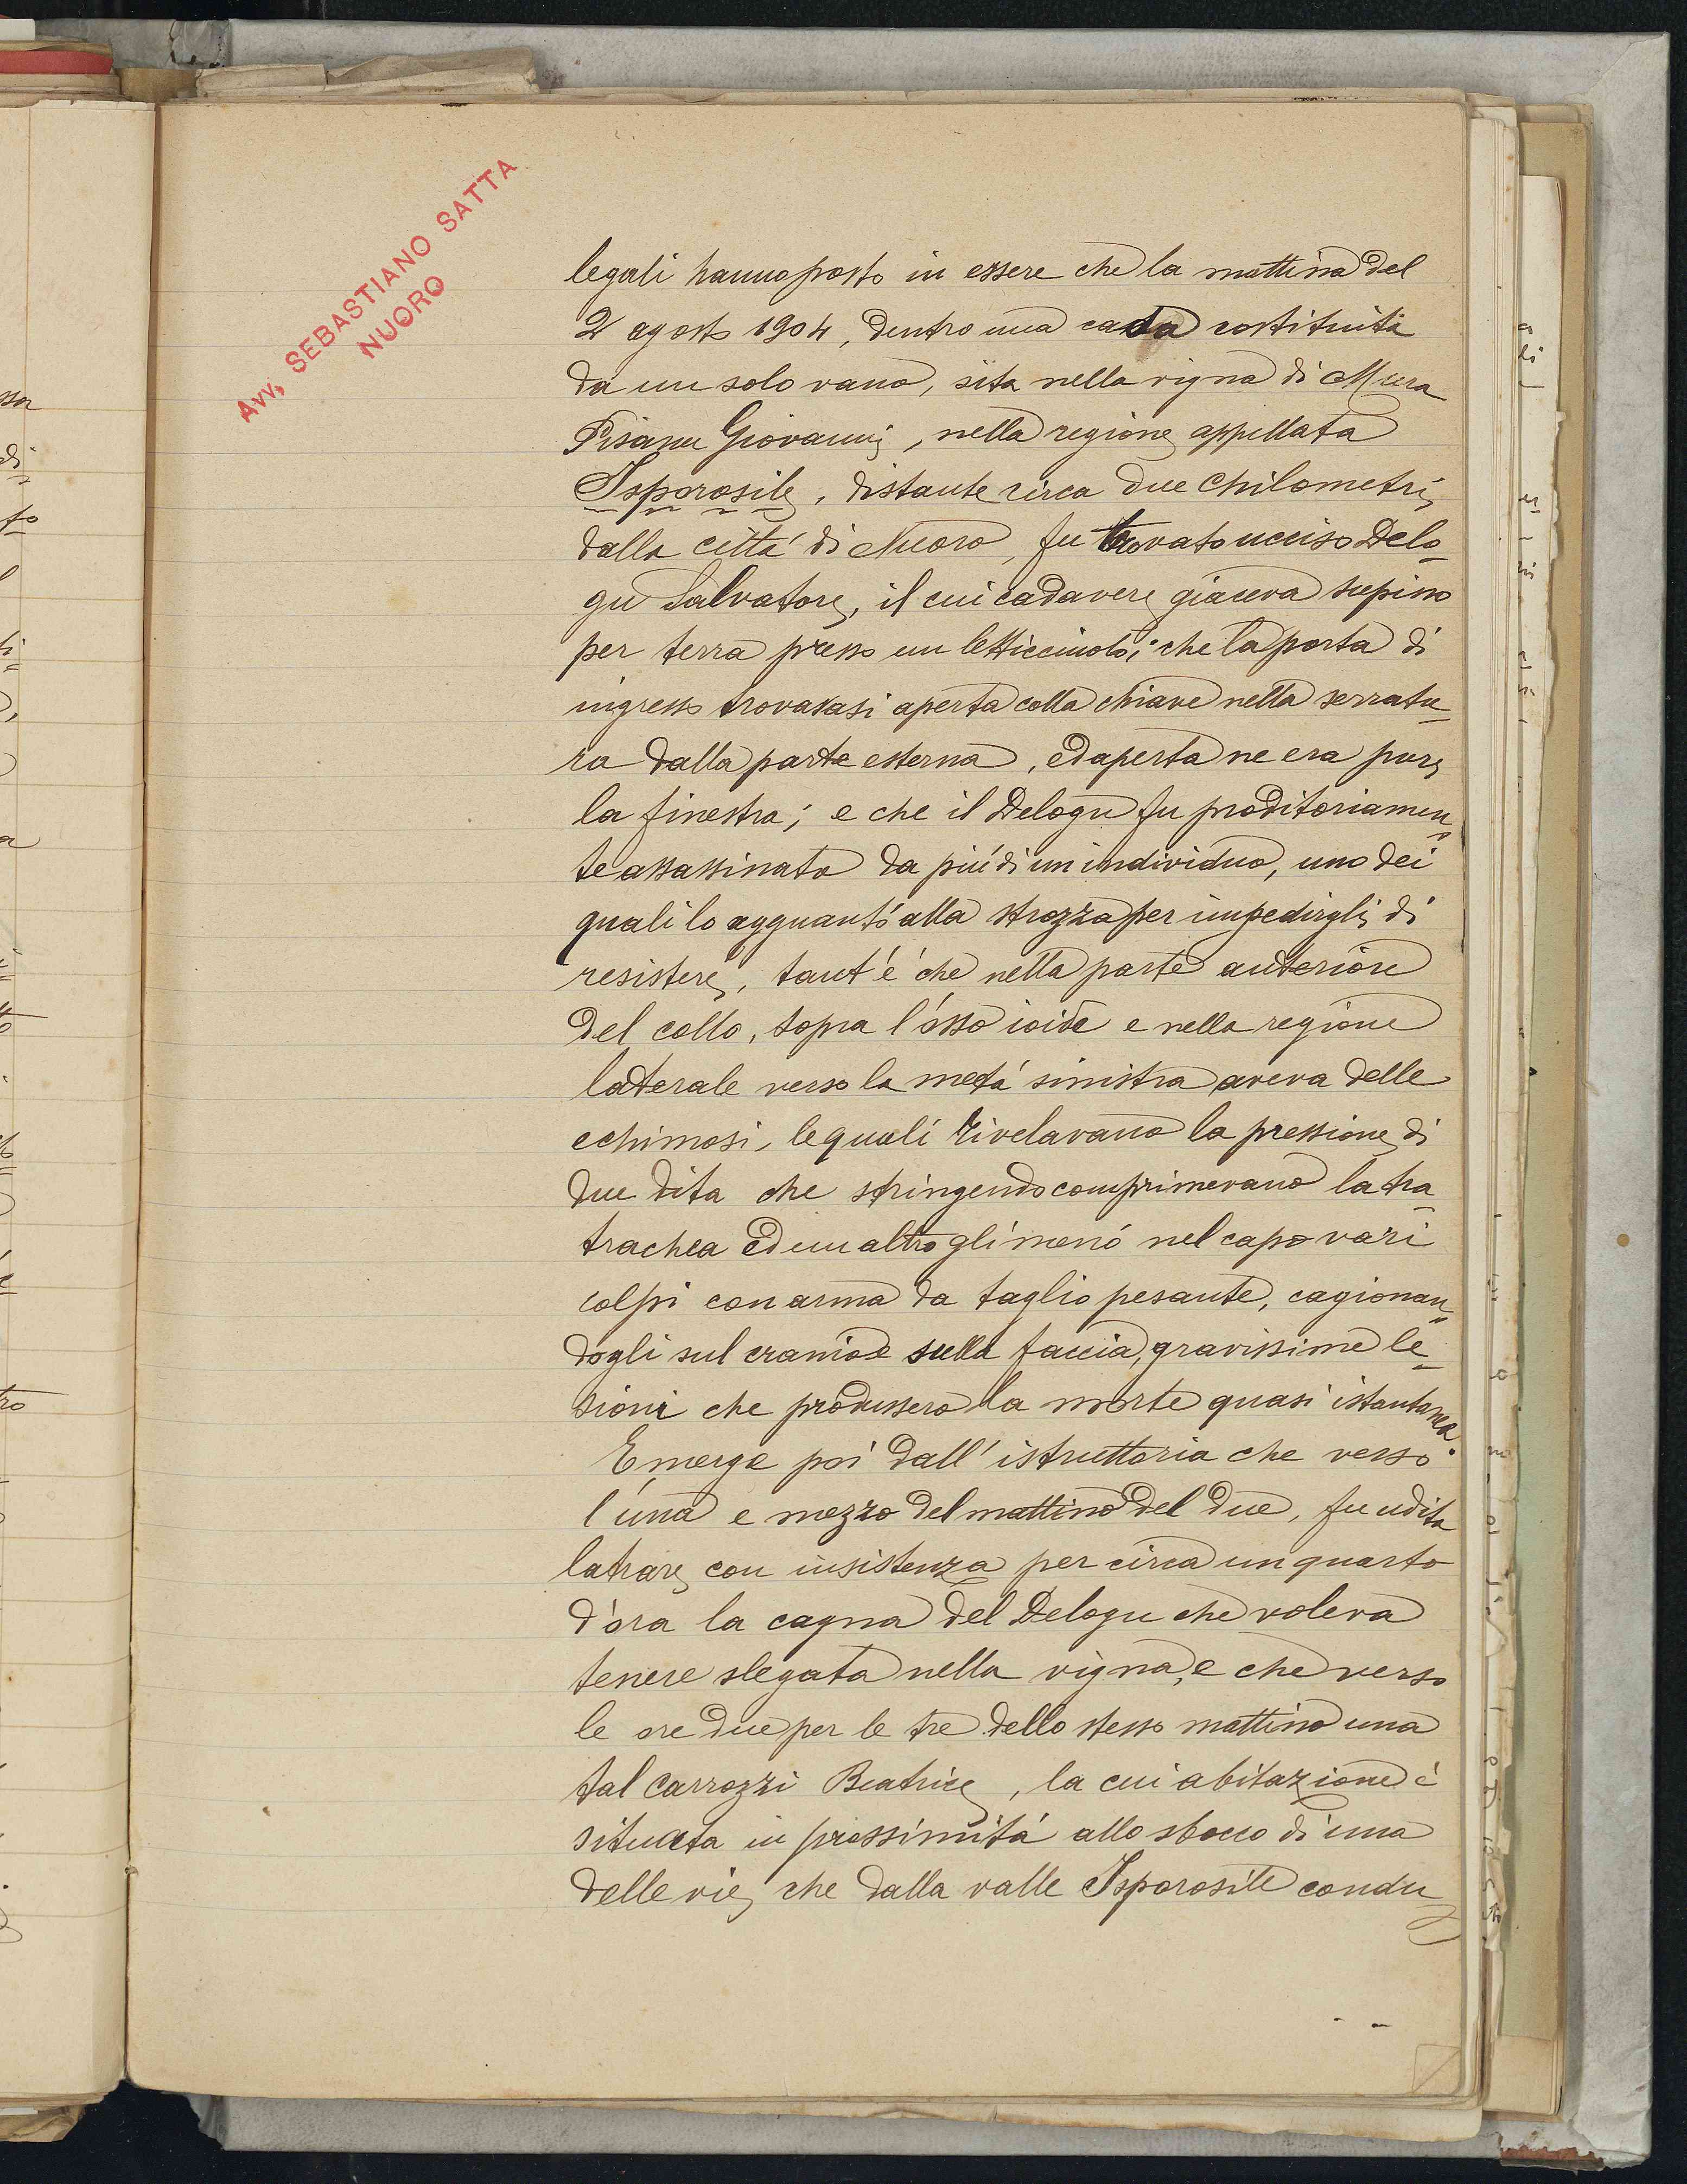 Avv. SEBASTIANO SATTA
NUORO
legali hanno posto in essere che la mattina del
2 agosto 1904, dentro una casa costituita
da un solo vano, sita nella vigna di Mura
Pisanu Giovanni, nella regione appellata
Isporosile, distante circa due chilometri
dalla cittá di Nuoro, fu trovato ucciso Delo-
gu Salvatore, il cui cadavere giaceva supino
per terra presso un letticciuolo; che la porta di
ingresso trovavasi aperta colla chiave nella serratu-
ra dalla parte esterna, ed aperta ne era pure
la finestra; e che il Delogu fu proditoriamen=
te assassinato da piú di un individuo, uno dei
quali lo agguantó alla strozza per impedirgli di
resistere, tant'é che nella parte anteriore
del collo, sopra l'osso ioide e nella regione
laterale verso la metá sinistra aveva delle
echimosi, le quali rivelavano la pressione di
due dita che stringendo comprimevano la tra-
trachea ed un altro gli menó nel capo vari
colpi con arma da taglio pesante, cagionan=
dogli sul cranio e sulla faccia, gravissime le-
sioni che produssero la morte quasi istantanea.
Emerge poi dall'istruttoria che verso
l'una e mezzo del mattino del due, fu udita
latrare con insistenza per circa un quarto
d'ora la cagna del Delogu che voleva
tenere slegata nella vigna, e che verso
le ore due per le tre dello stesso mattino una
tal Carrozzi Beatrice, la cui abitazione é
situata in prossimitá allo sbocco di una
delle vie che dalla valle Isporosile condu-